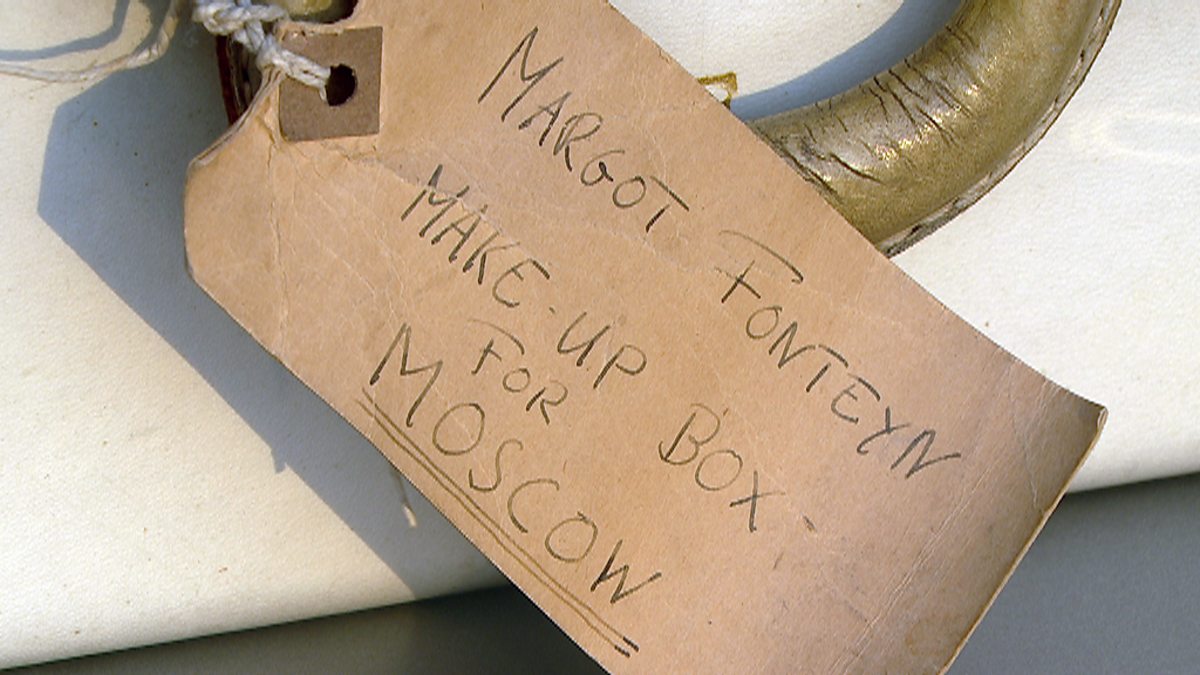 MARGOT FONTEYN
MAKE-UP BOX-
FOR
MOSCOW